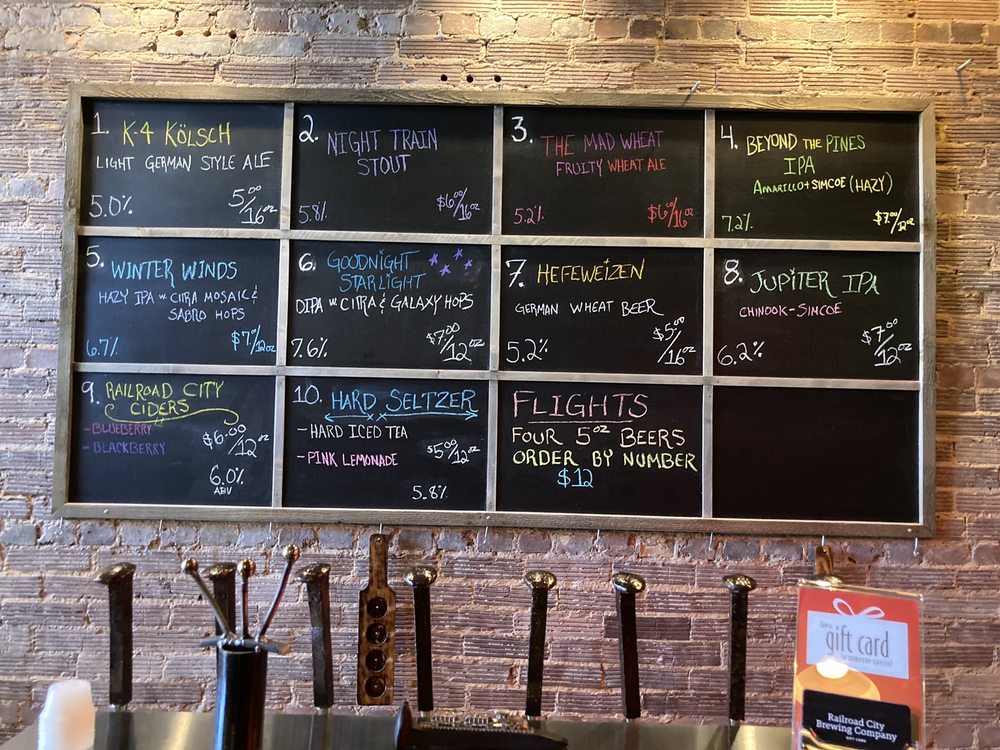 1. K-4 KÖLSCH
LIGHT GERMAN STYLE ALE
5.0%
5.00/16oz
2. NIGHT TRAIN
STOUT
5.8%
$6.00/16oz
3. THE MAD WHEAT
FRUITY WHEAT ALE
5.2%
$6.00/16oz
4. BEYOND THE PINES
IPA
AMARILLO + SIMCOE (HAZY)
7.2%
$7.00/12oz
5. WINTER WINDS
HAZY IPA w CITRA MOSAIC &
SABRO HOPS
6.7%
$7.00/12oz
6. GOODNIGHT
STARLIGHT
DIPA w CITRA & GALAXY HOPS
7.6%
$7.00/12oz
7. HEFEWEIZEN
GERMAN WHEAT BEER
5.2%
$5.00/16oz
8. JUPITER IPA
CHINOOK-SIMCOE
6.2%
$7.00/12oz
9. RAILROAD CITY
CIDERS
- BLUEBERRY
- BLACKBERRY
$6.00/12oz
6.0%
ABV
10. HARD SELTZER
- HARD ICED TEA
- PINK LEMONADE
$5.00/12oz
5.8%
FLIGHTS
FOUR 5oz BEERS
ORDER BY NUMBER
$12
Give a
gift card
to someone special
Railroad City
Brewing Company
GIFT CARD